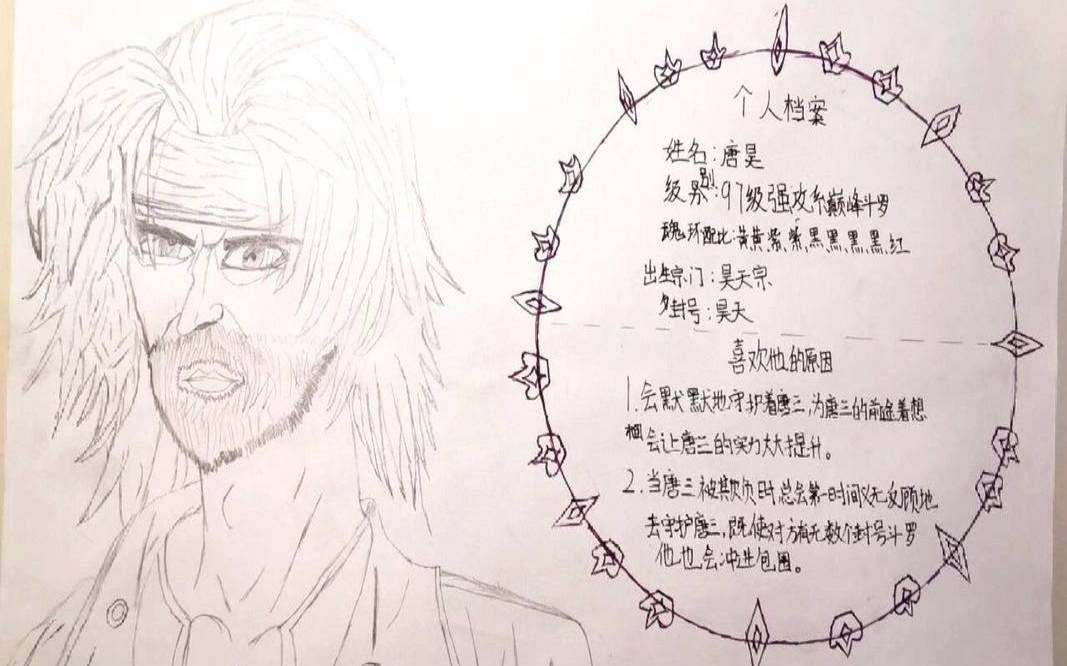 个人档案
姓名:唐昊
级别:97级强攻系巅峰斗罗
魂环配比:黄,黄,紫,紫,黑,黑,黑,黑,红
出生宗门:昊天宗
封号:昊天
喜欢他的原因
1.会默默地守护着唐三,为唐三的前途着想
会让唐三的实力大大提升。
2.当唐三被欺负时总会第一时间义无反顾地
去守护唐三,既使对方有无数个封号斗罗
他也会冲进包围。